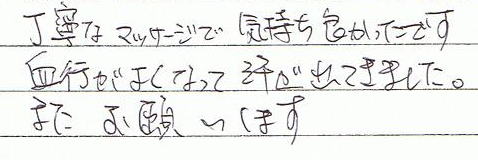 丁寧なマッサージで気持ち良かったです
血行がよくなって汗が出てきました。
またお願いします